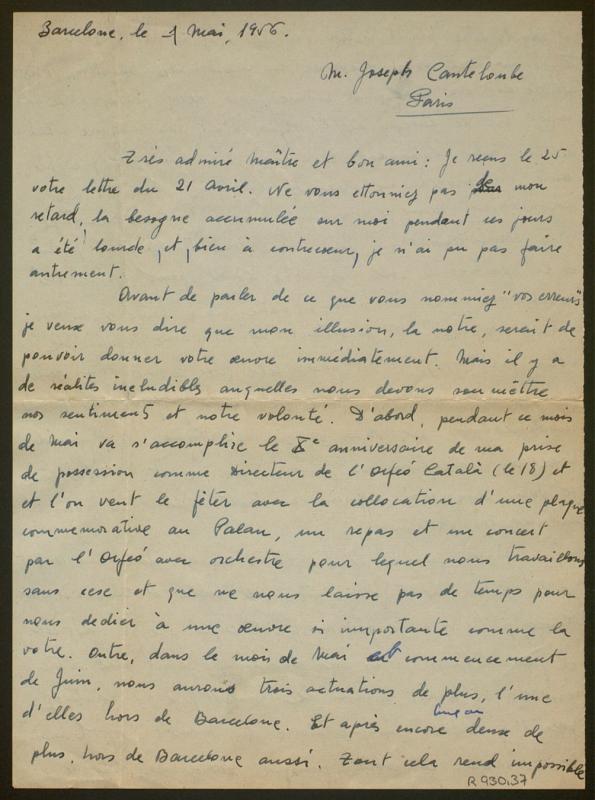 Barcelone, le 1 Mai, 1956.
M. Joseph Canteloube
Paris
Très admiré Maître et bon ami: Je reçus le 25
votre lettre du 21 Avril. Ne vous ettonniez pas de mon
retard, la besogne accumulée sur moi pendant ces jours
a été lourde, et, bien à contrecoeur, je n'ai pu pas faire
autrement.
Avant de parler de ce que vous nommiez "vos erreurs"
je veux vous dire que mon illusion, la nôtre, serait de
pouvoir donner votre œuvre immédiatement. Mais il y a
de réalités ineludibles auquelles nous devons soumettre
nos sentiments et notre volonté. D'abord, pendant ce mois
de Mai va s'accomplire le Xe anniversaire de ma prise
de possession comme Directeur de l'Orfeó Català (le 18) et
et l'on veut le fêter avec la collocation d'une plaque
commemorative au Palau, un repas et un concert
par l'Orfeó avec orchestre pour lequel nous travaillons
sans cese et que ne nous laisse pas de temps pour
nous dedier à une œuvre si importante comme la
votre. Outre, dans le mois de Mai et commencement
de Juin, nous aurons trois actuations de plus, l'une
d'elles hors de Barcelone. Et après encore deux de
plus, hors de Barcelone aussi. Tout cela rend impossible
R 930,37